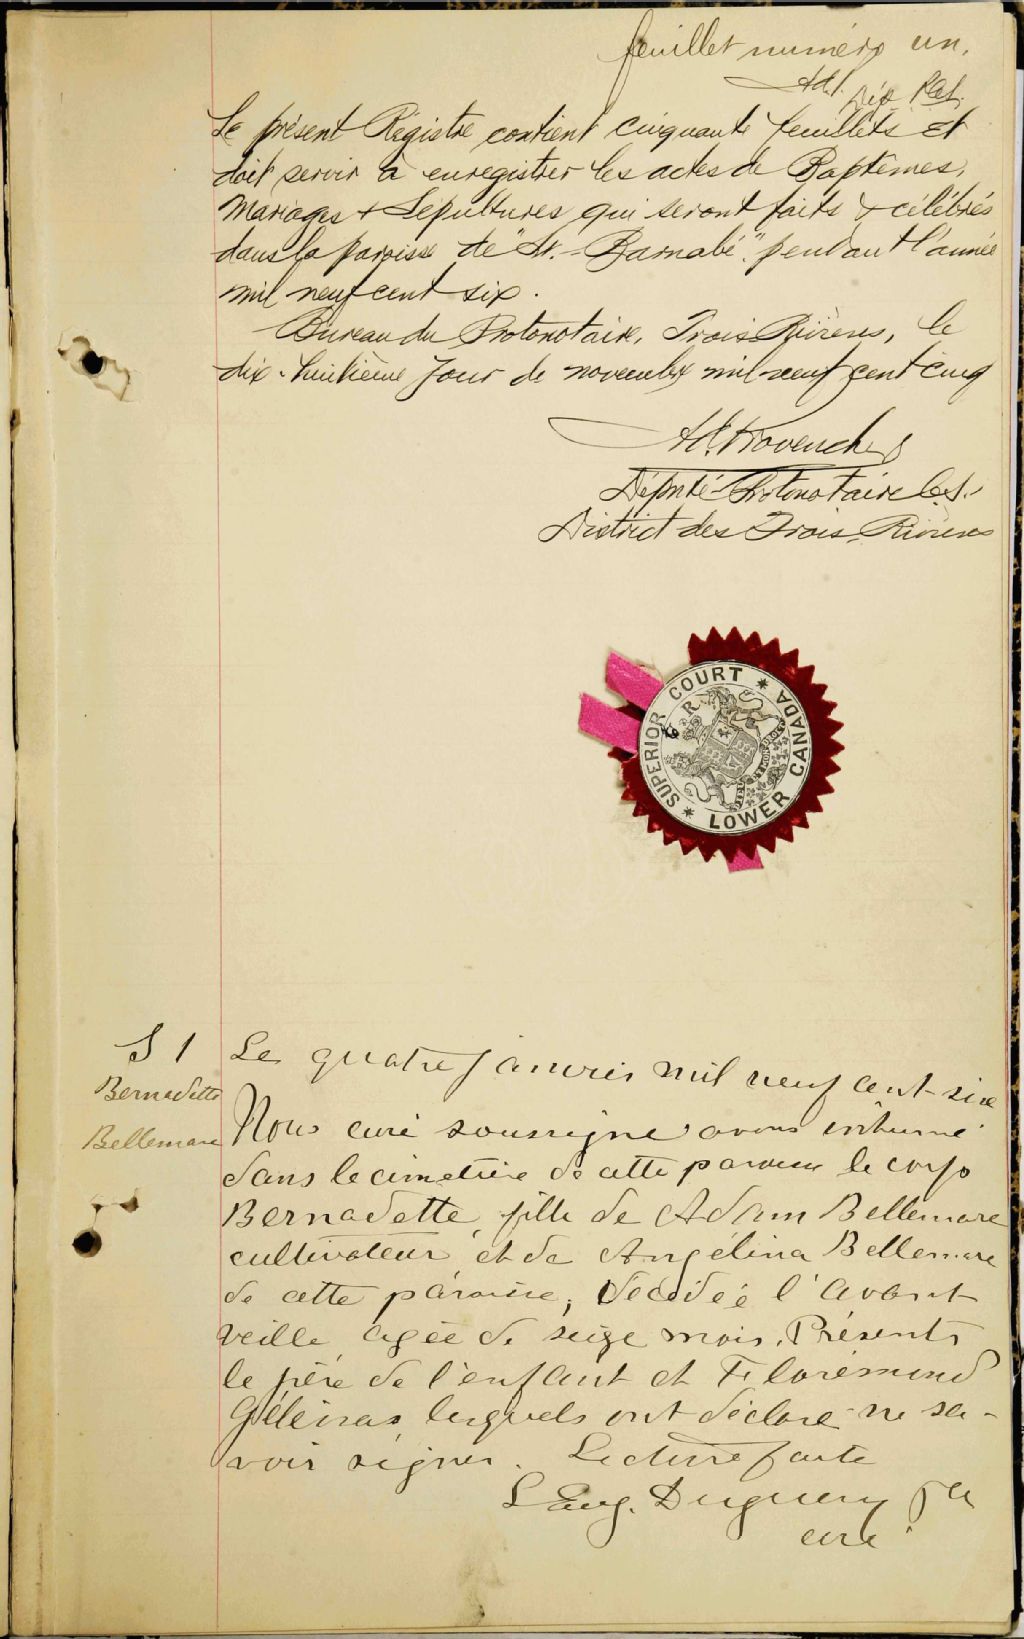 feuillet numéro un.
Ad. P. Dép. P.C.S.
Le présent Régistre contient cinquante feuillets et
doit servir à enregistrer les actes de Baptêmes,
Mariages & Sépultures qui seront faits & célébrés
dans la paroisse de "St.-Barnabé", pendant l'année
mil neuf cent six.
Bureau du Protonotaire, Trois Rivières, le
dix-huitième jour de novembre mil neuf cent cinq
Ad. Provencher
Député-Protonotaire C.S.
District des Trois-Rivières
SUPERIOR COURT * LOWER CANADA *
S 1
Bernadette
Bellemare
Le quatre janvier mil neuf cent six
Nous curé soussigné avons inhumé
dans le cimetière de cette paroisse le corps
Bernadette, fille de Adam Bellemare
cultivateur et de Angélina Bellemare
de cette paroisse, décédée l'avant
veille agée de seize mois. Présents
le père de l'enfant et Florémond
Gélinas lesquels ont déclaré ne sa-
voir signer. Lecture faite
L Eug. Duguay Ptre
curé